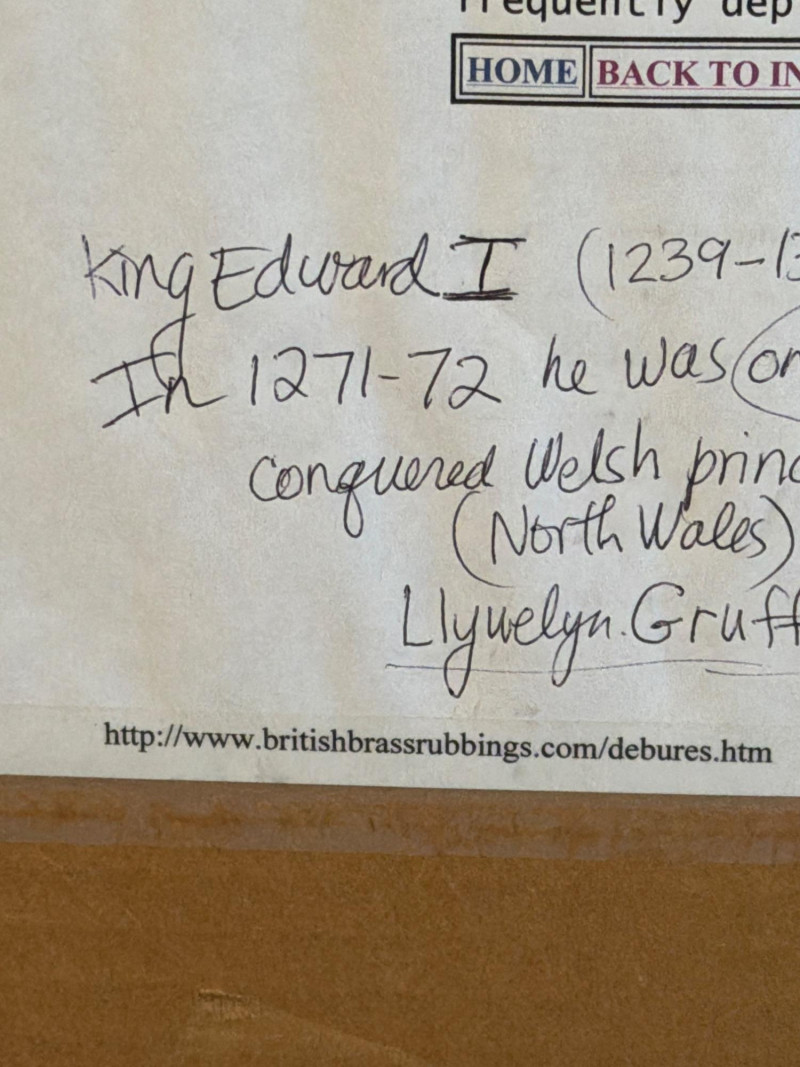 frequently dep
HOME BACK TO IN
King Edward I (1239-13
In 1271-72 he was on
conquered Welsh princ
(North Wales)
Llywelyn. Gruff
http://www.britishbrassrubbings.com/debures.htm